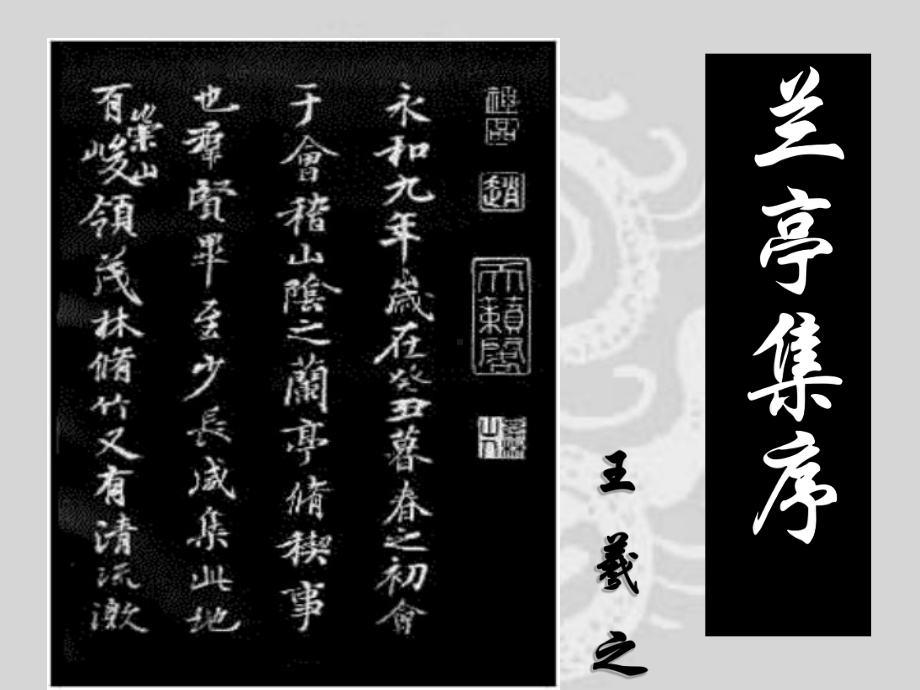 兰亭集序
王羲之
神品
趙
天籟閣
永和九年歲在癸丑暮春之初會
于會稽山陰之蘭亭脩稧事
也羣賢畢至少長咸集此地
有崇山峻領茂林脩竹又有清流激